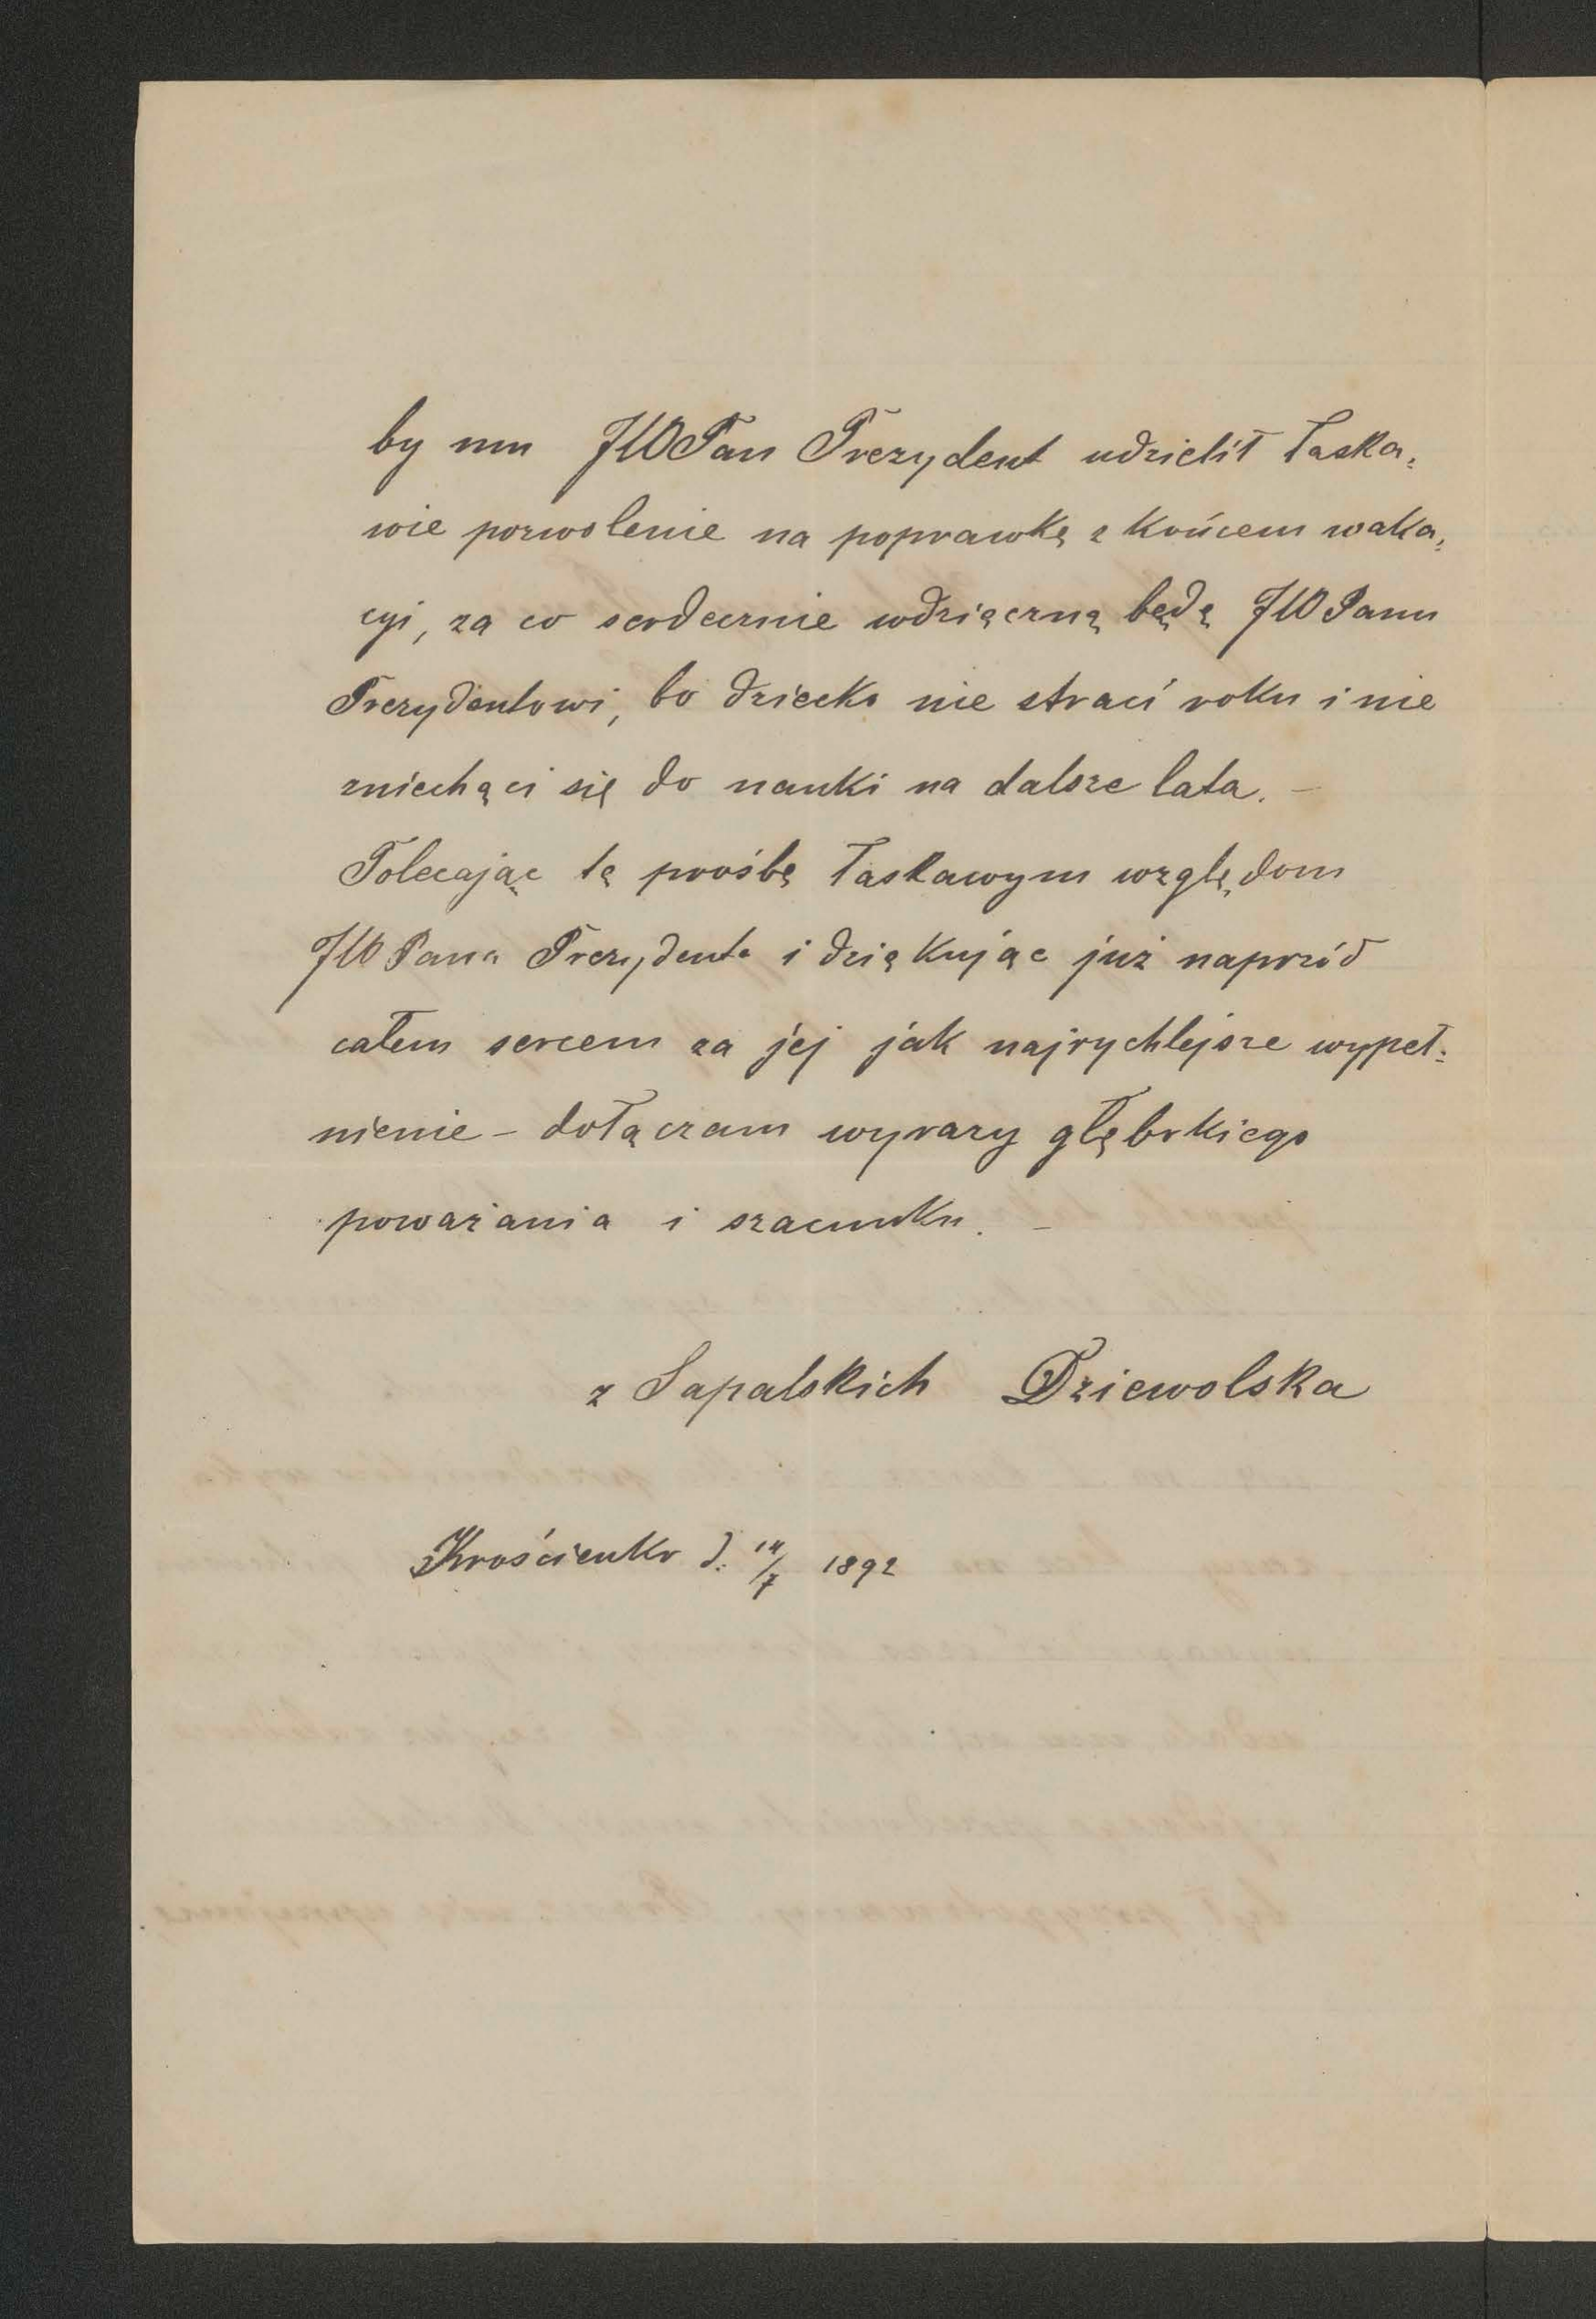 by mu JWPan Prezydent udzielił łaska,
wie pozwolenie na poprawkę z końcem waka,
cyi, za co serdecznie wdzięczną będę JWPanu
Prezydentowi, bo dziecko nie straci roku i nie
zniechęci się do nauki na dalsze lata. –
Polecając tę prośbę łaskawym względom
JWPana Prezydenta i dziękując już naprzód
całem sercem za jej jak najrychlejsze wypeł:
nienie – dołączam wyrazy głębokiego
poważania i szacunku. –
z Sapalskich Dziewolska
Krościenko d. 14/7 1892